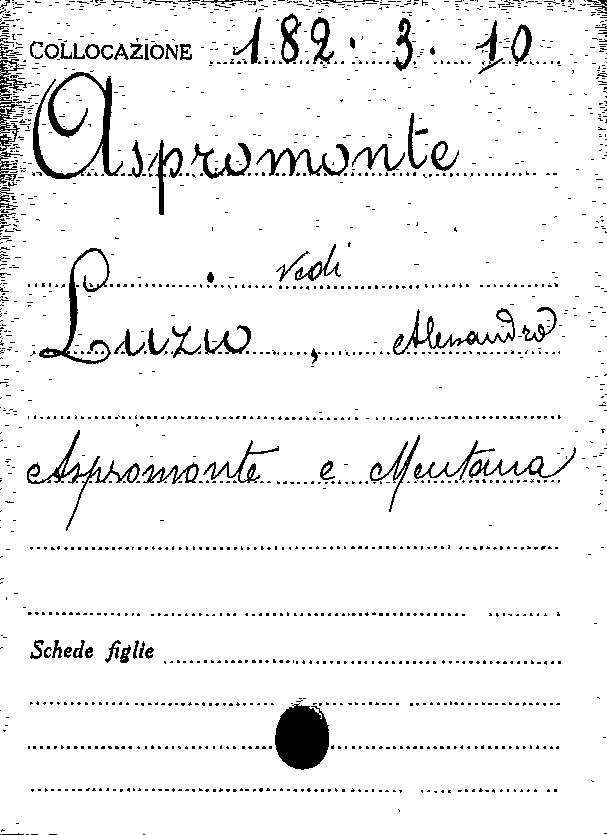 COLLOCAZIONE 182. 3. 10
Aspromonte
Vedi
Luzio, Alessandro
Aspromonte e Mentana
Schede figlie